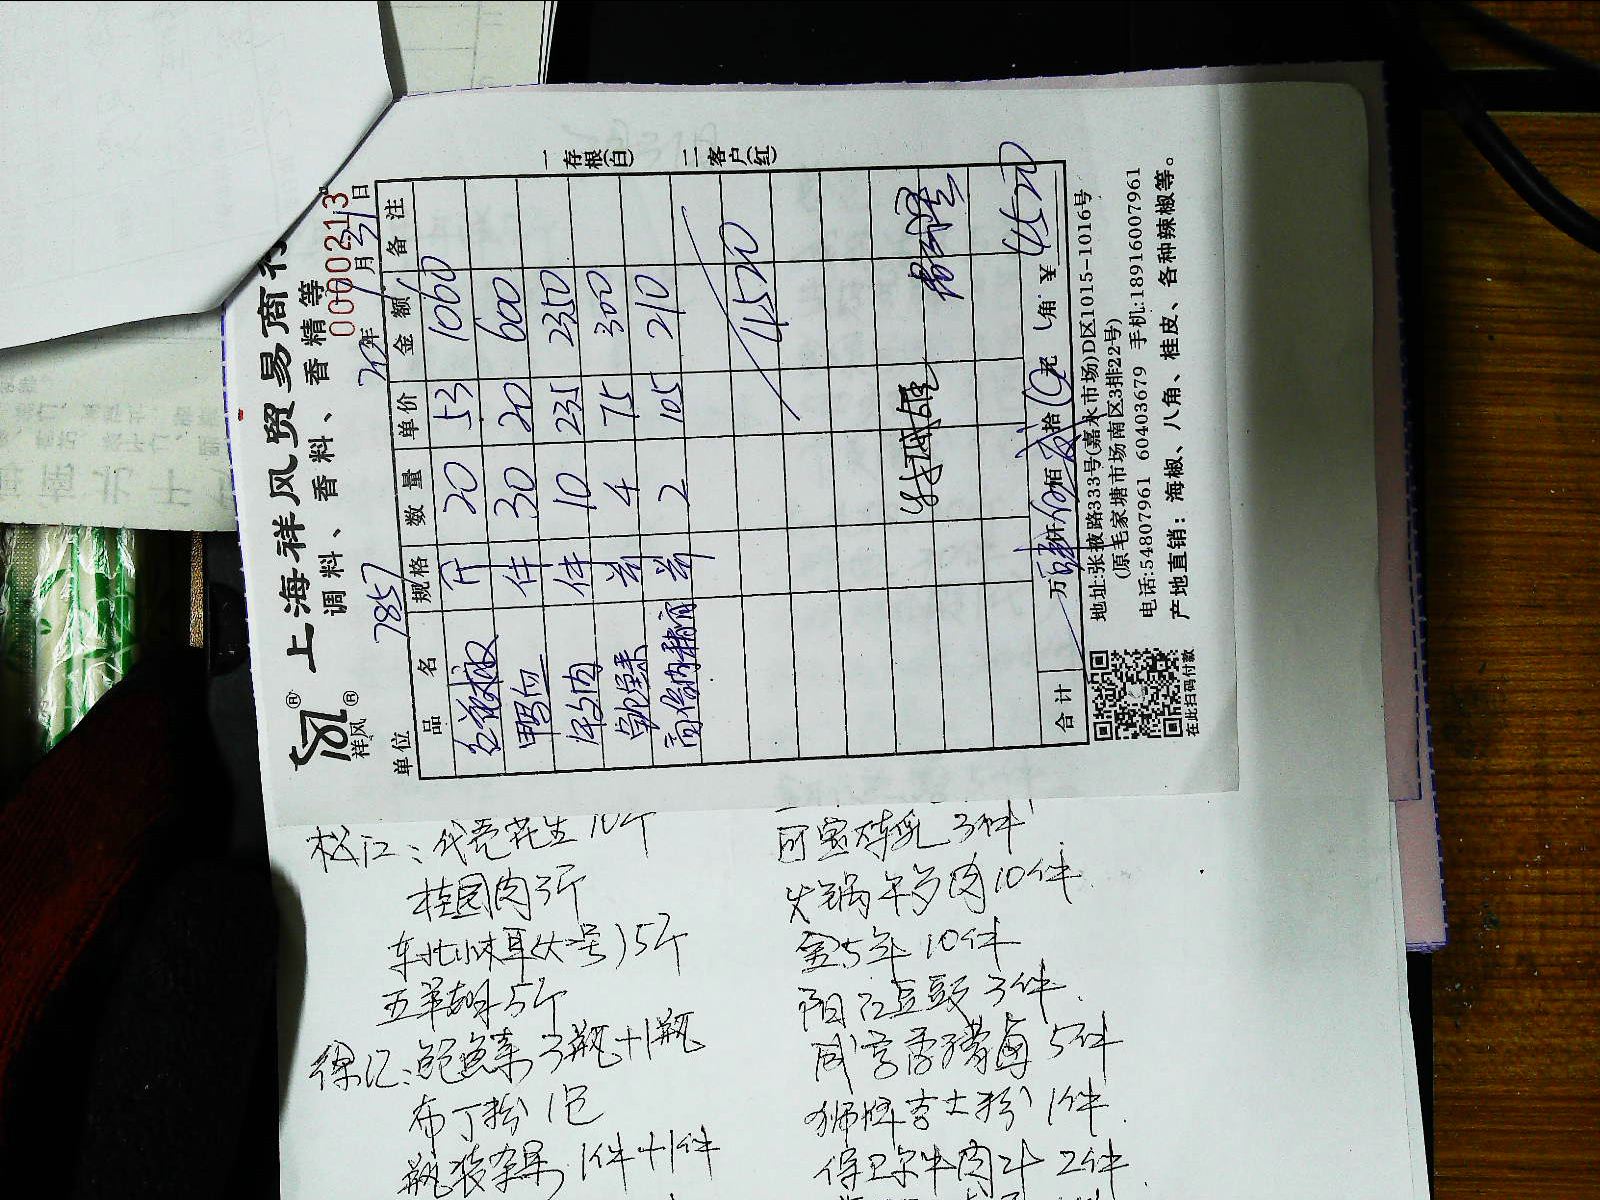 上海祥风贸易商行
调料、香料、香精等
0000213
祥风
单位 7857 年 月 31 日
品名 规格 数量 单价 金额 备注
红花椒 斤 20 53 1060
鸭血 件 30 20 600
午夕肉 件 10 235 2350
鲍鱼素 瓶 4 75 300
高倍肉精油 瓶 2 105 210
4520
合计 万 肆仟 伍佰 贰拾 元 角 ¥ 4520
一存根(白)
二客户(红)
地址:张掖路333号(嘉永市场)D区1015-1016号
(原毛家塘市场南区3排22号)
电话:54807961 60403679 手机:18916007961
产地直销：海椒、八角、桂皮、各种辣椒等。
在此扫码付款
松江:代壳花生10斤
桂园肉3斤
东北小木耳(大号)5斤
五羊 5斤
徐汇:鲍鱼素 3瓶+1瓶
布丁粉 1包
瓶装 1件+1件
炼乳 3件
火锅午夕肉10件
金5年 10件
阳江豆豉 3件
5件
狮牌吉士粉 1件
保卫尔牛肉汁 2件